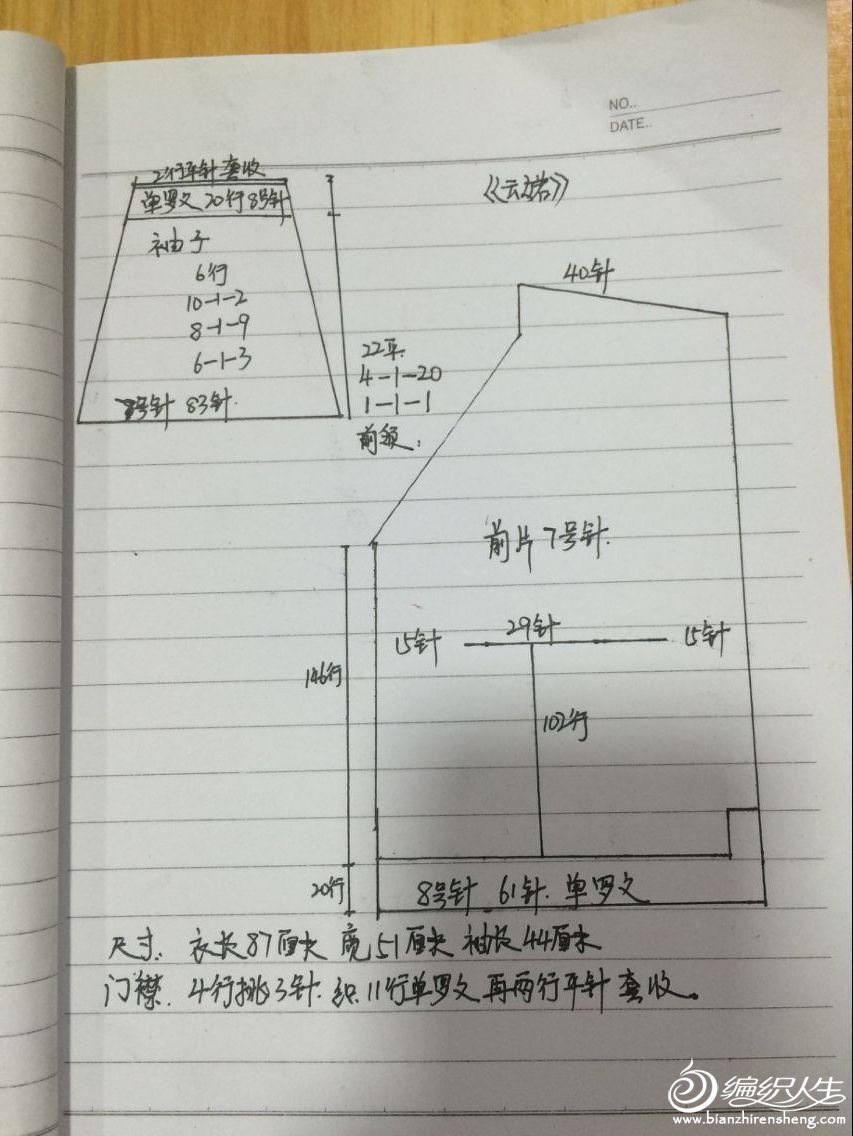 NO..
DATE..
2行平针套收
单罗文 20行8号针
《云裳》
袖子
6行
10-1-2
8-1-9
6-1-3
8号针 83针
40针
22平.
4-1-20
1-1-1
前领.
前片 7号针.
15针 29针 15针
146行
102行
20行
8号针 61针. 单罗文
尺寸: 衣长87厘米 宽51厘米 袖长44厘米
门襟. 4行挑3针. 织11行单罗文再两行平针套收。
编织人生
www.bianzhirensheng.com